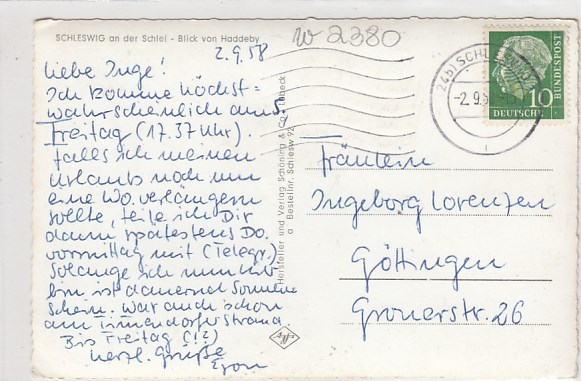 SCHLESWIG an der Schlei - Blick von Haddeby
W 2380
2.9.58
Liebe Inge!
Ich komme höchst=
wahrscheinlich am 5.
Freitag (17.37 Uhr).
Falls ich meinen
Urlaub noch um
eine Wo. verlängern
sollte, teile ich Dir
dann spätestens Do.
vormittag mit (Telegr.)
Solange ich nun hier
bin ist dauernd Sonnen
schein. War auch schon
am Timmendorfer Strand
Bis Freitag (!?)
Herzl. Grüße
Hersteller und Verlag Schöning & Co., Lübeck
Bestellnr. Schlesw 92
(24b) SCHLESWIG
-2.9.5
DEUTSCHE
BUNDESPOST
10
Fräulein
Ingeborg Lorenzen
Göttingen
Gronerstr. 26